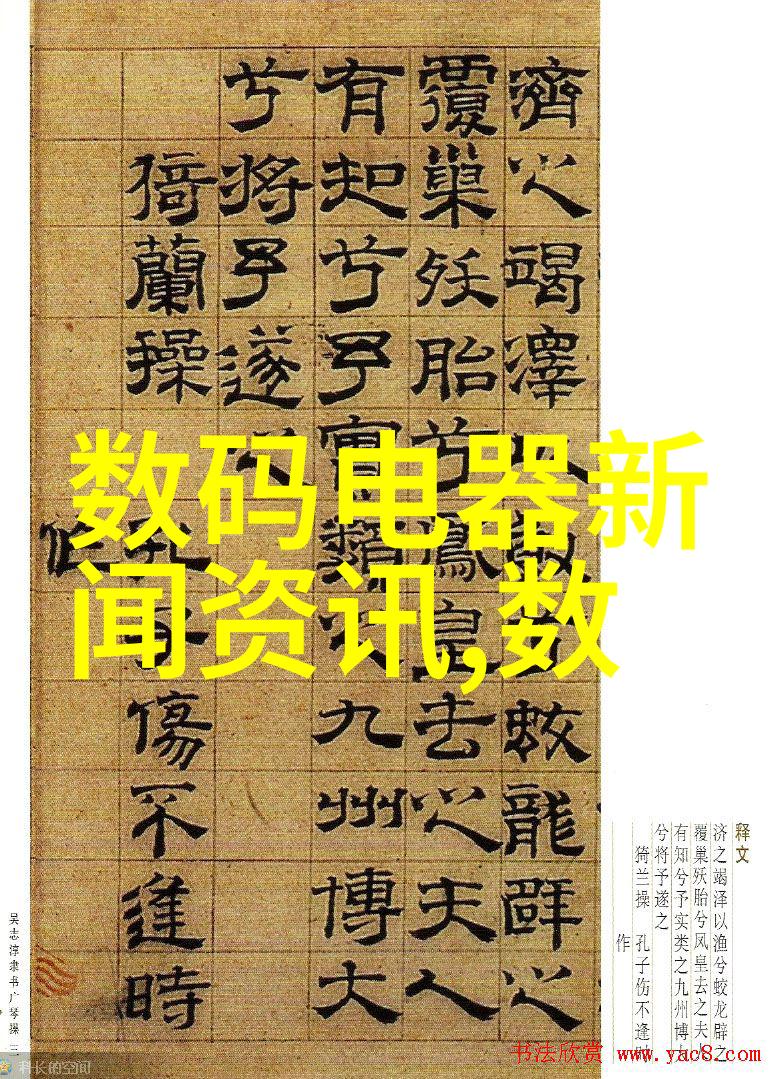 濟之竭澤以漁兮蛟龍辟之
覆巢殀胎兮鳳皇去之夫人
有知兮予實類之九州博大
兮將予遂之
猗蘭操 孔子傷不逢時
作
数码电器新
闻资讯,数
释文
济之竭泽以渔兮蛟龙辟之
覆巢殀胎兮凤皇去之夫人
有知兮予实类之九州博
兮将予遂之
猗兰操 孔子伤不逢时
作
吴志淳隶书广琴操 三
科长的空间
书法欣赏 www.yac8.com